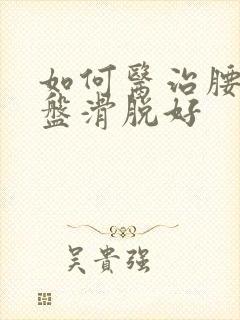 如何醫治腰
盤滑脫好
吳貴強